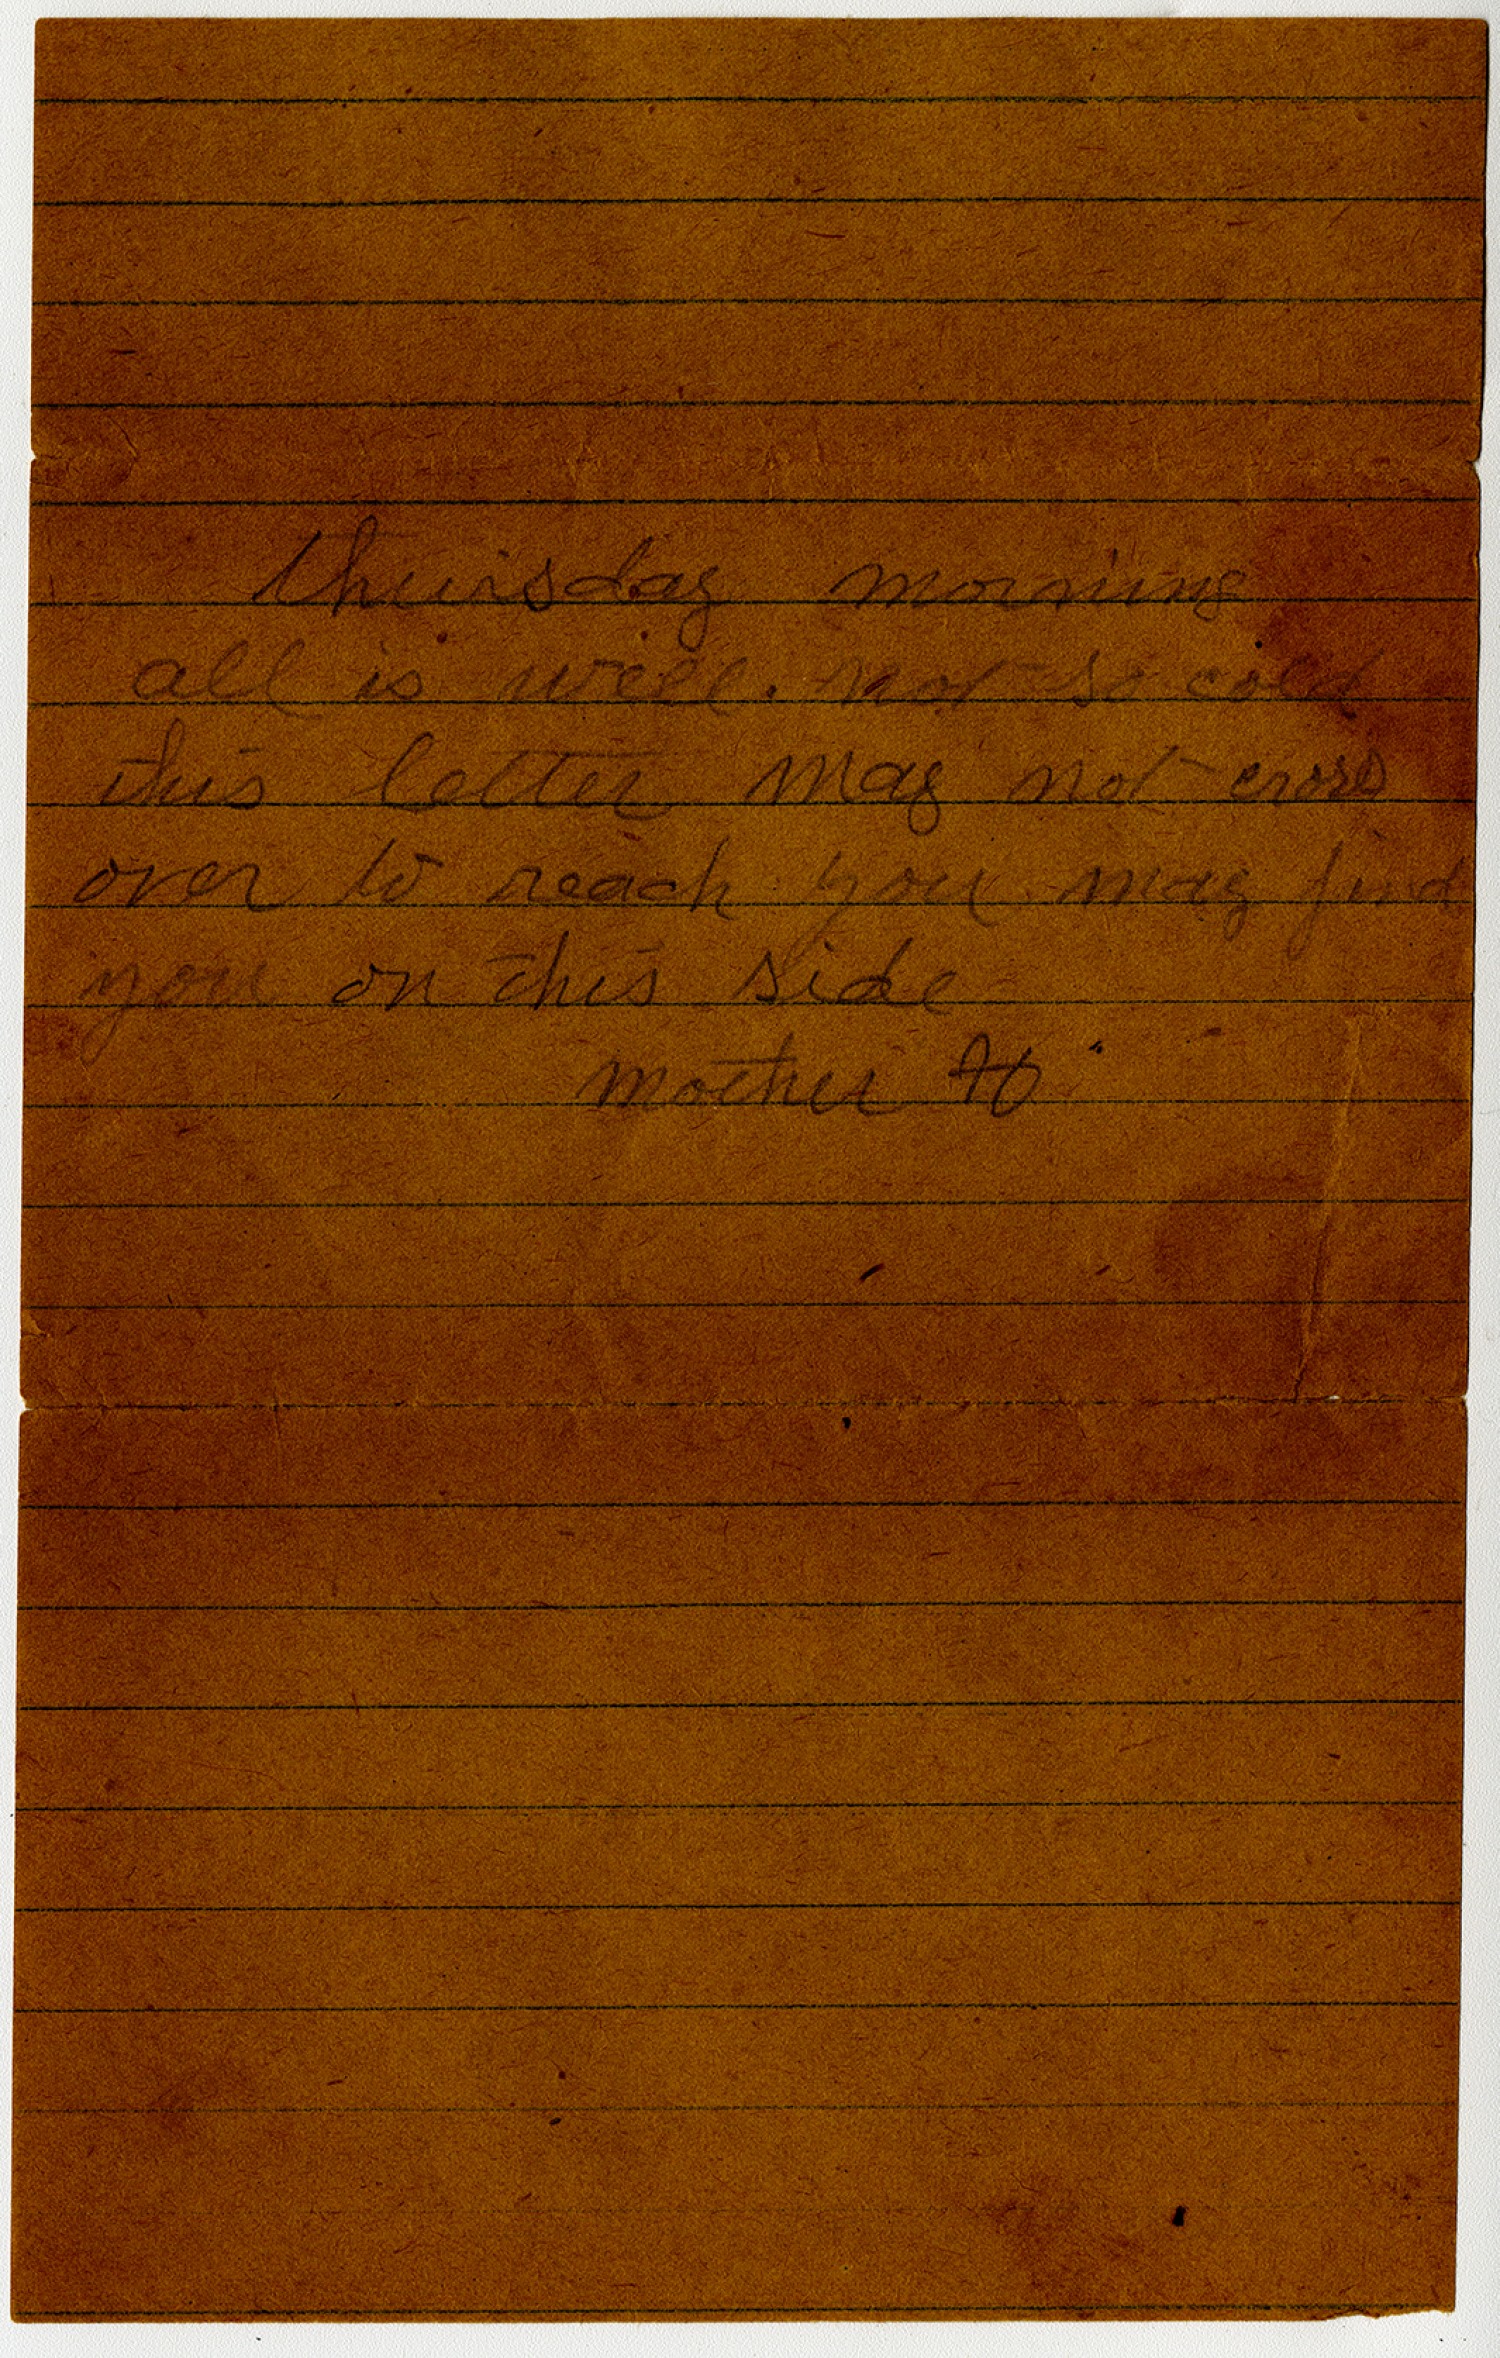 thursday morning
all is well. not so cold
this letter may not cross
over to reach you may find
you on this side
mother